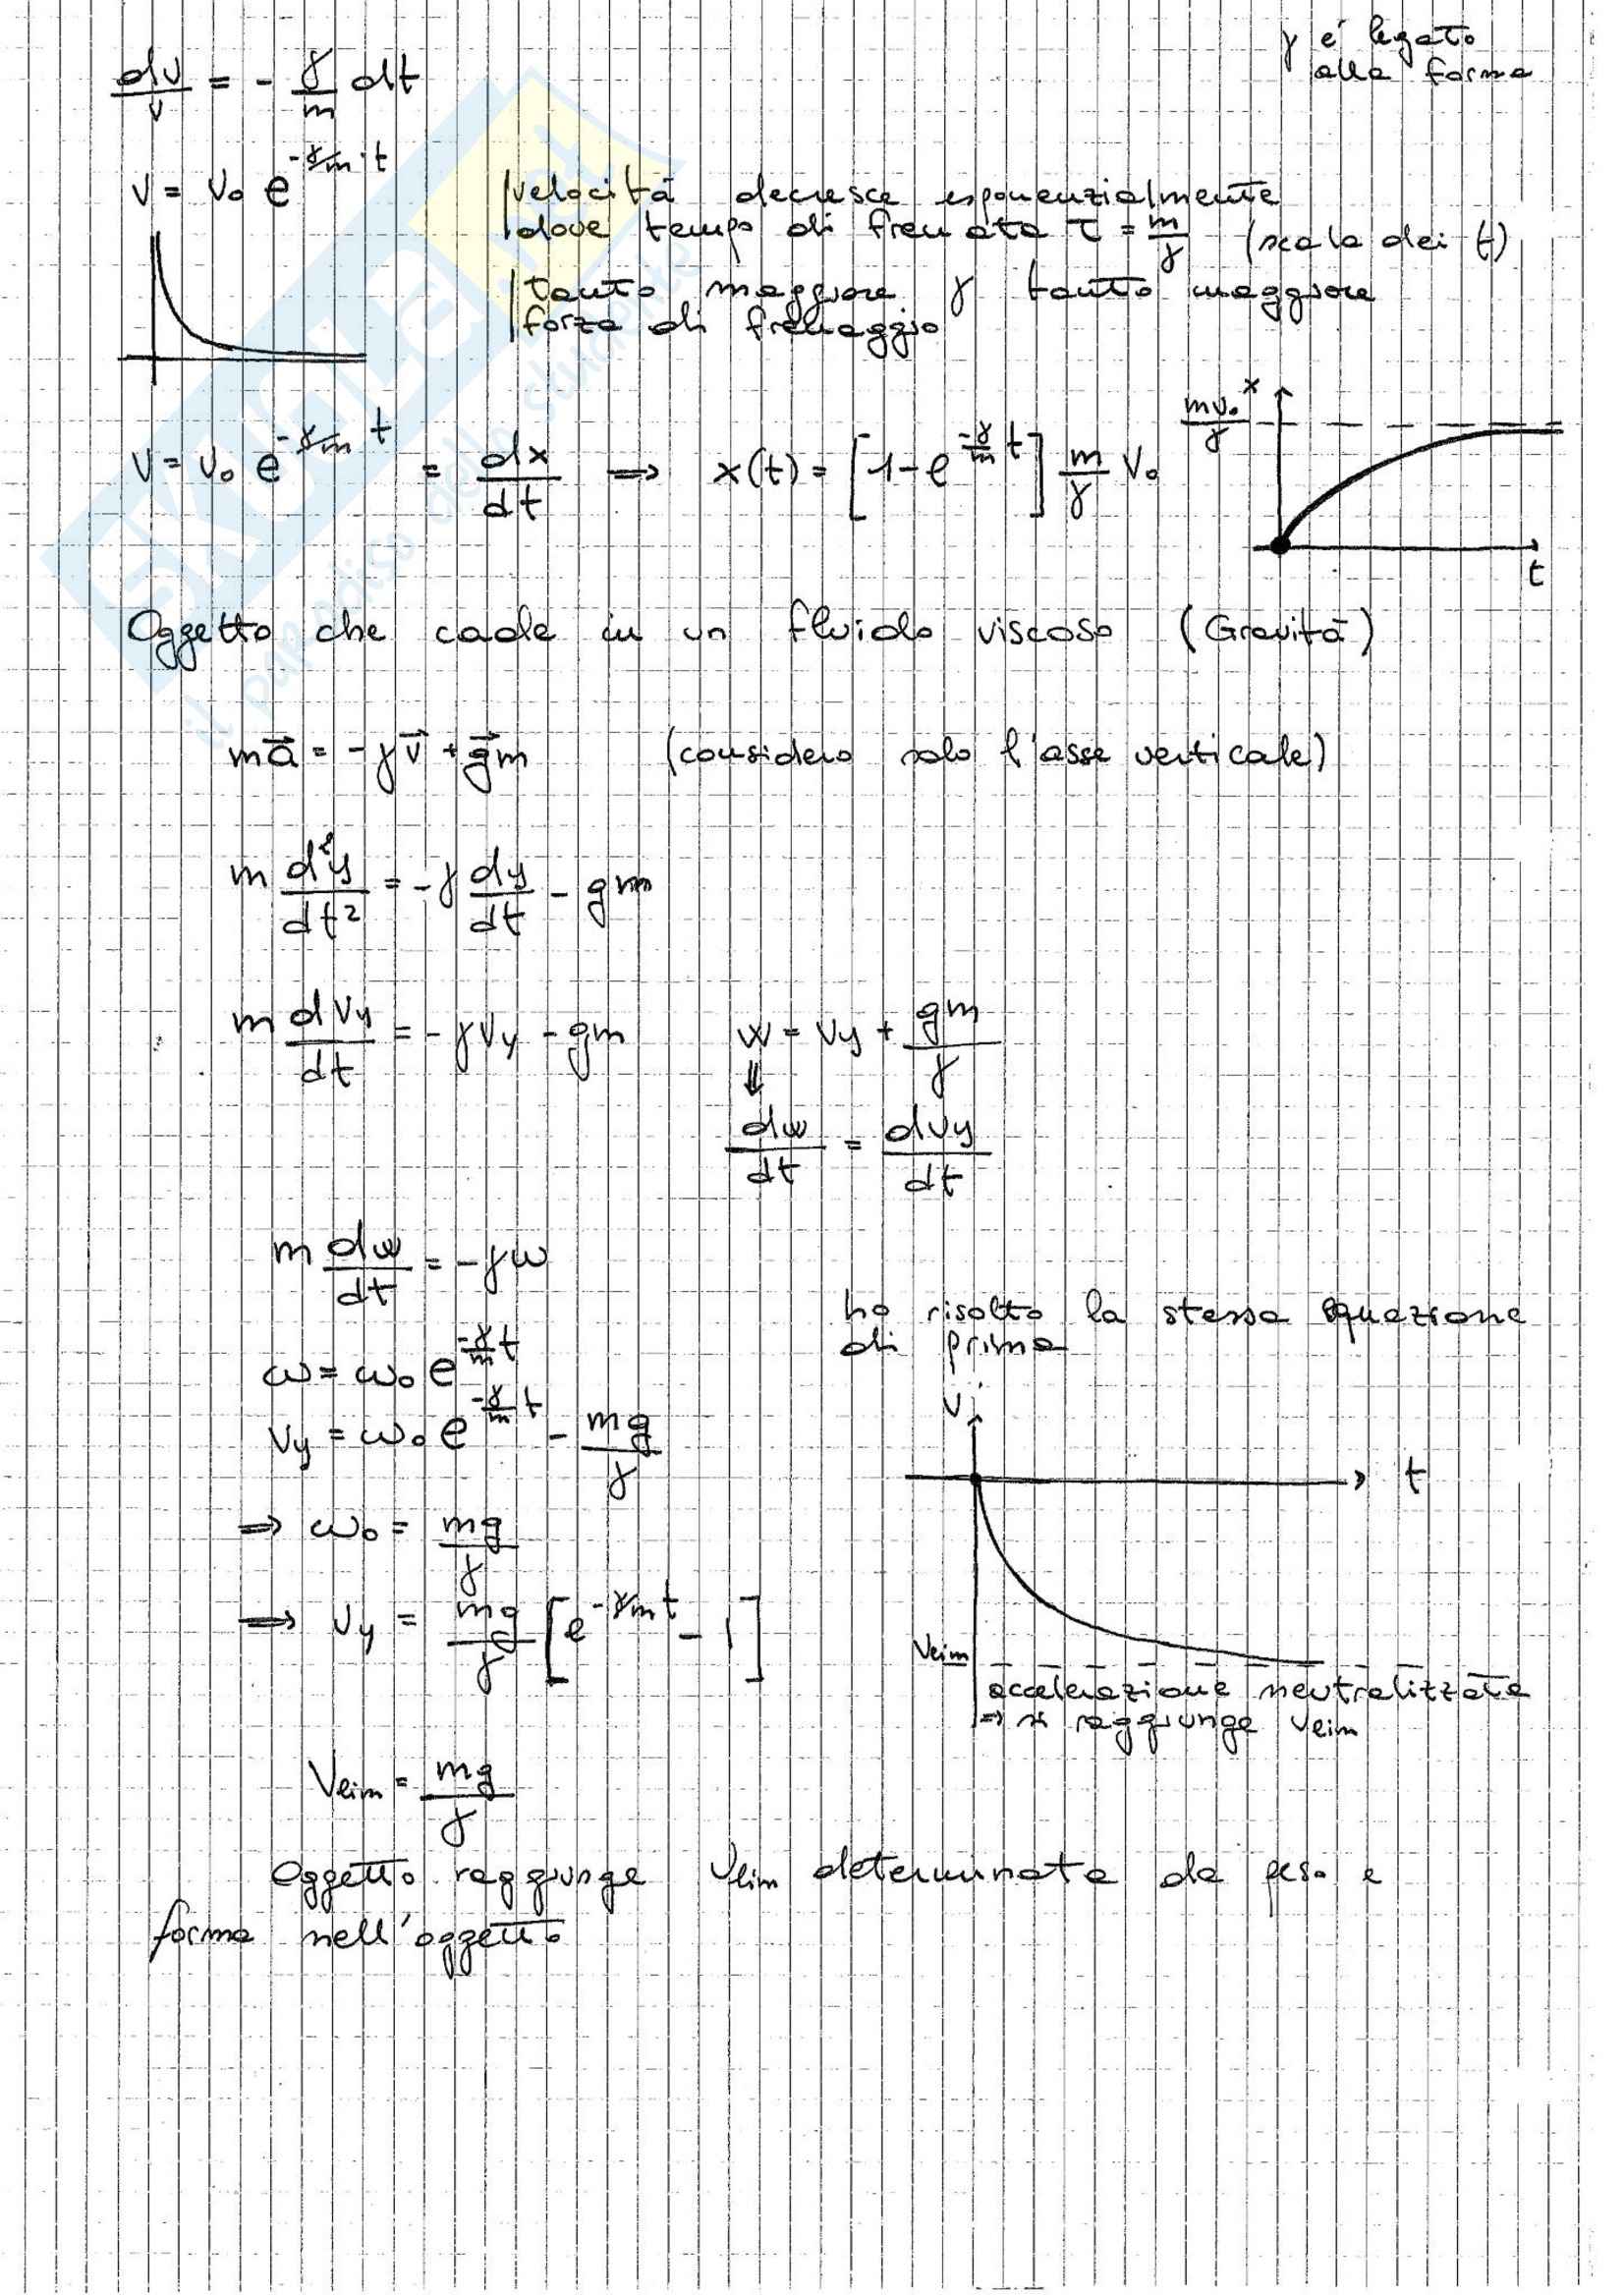 γ é legato
alla forma
dv/v = - γ/m dt
v = v₀ e^(-γ/m · t)
velocitá decresce esponenzialmente
dove tempo di frenata τ = m/γ (scala dei t)
tanto maggiore γ tanto maggiore
forza di frenaggio
v = v₀ e^(-γ/m t) = dx/dt ⟹ x(t) = [1 - e^(-γ/m t)] m/γ v₀
mv₀/γ
x
t
Oggetto che cade in un fluido viscoso (Gravitá)
ma⃗ = -γv⃗ + g⃗m (considero solo l'asse verticale)
m d²y/dt² = -γ dy/dt - gm
m dvy/dt = -γvy - gm
w = vy + gm/γ
⇓
dw/dt = dvy/dt
m dw/dt = -γw
ho risolto la stessa equazione
di prima
ω = ω₀ e^(-γ/m t)
vy = ω₀ e^(-γ/m t) - mg/γ
⟹ ω₀ = mg/γ
⟹ vy = mg/γ [e^(-γ/m t) - 1]
v
t
vlim
accelerazione neutralizzata
⟹ si raggiunge vlim
Vlim = mg/γ
Oggetto raggiunge Vlim determinata da peso e
forma nell'oggetto
SKUOLA.net
il paradiso dello studente